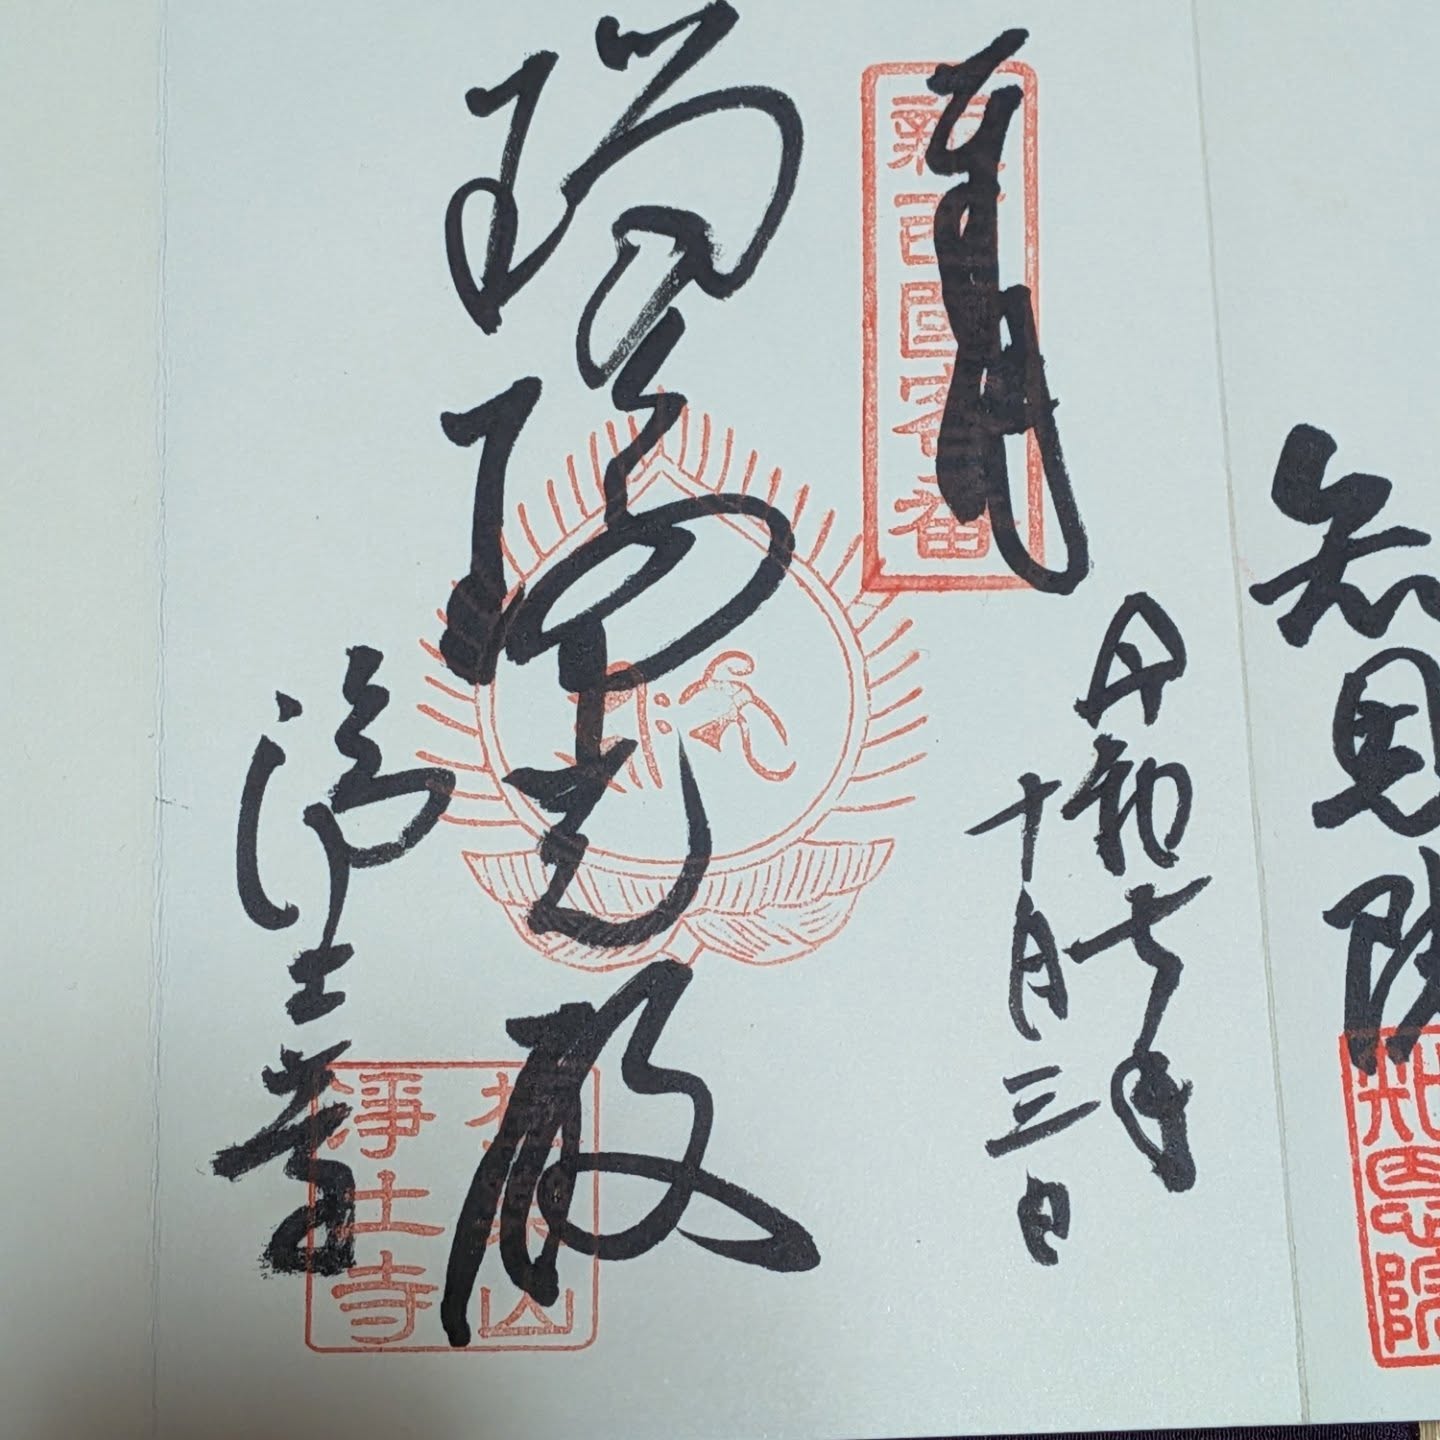 知恩院
知恩院
奉拝
新西国客番
令和七年
十月三日
瑠璃光殿
浄土寺
極楽山
淨土寺